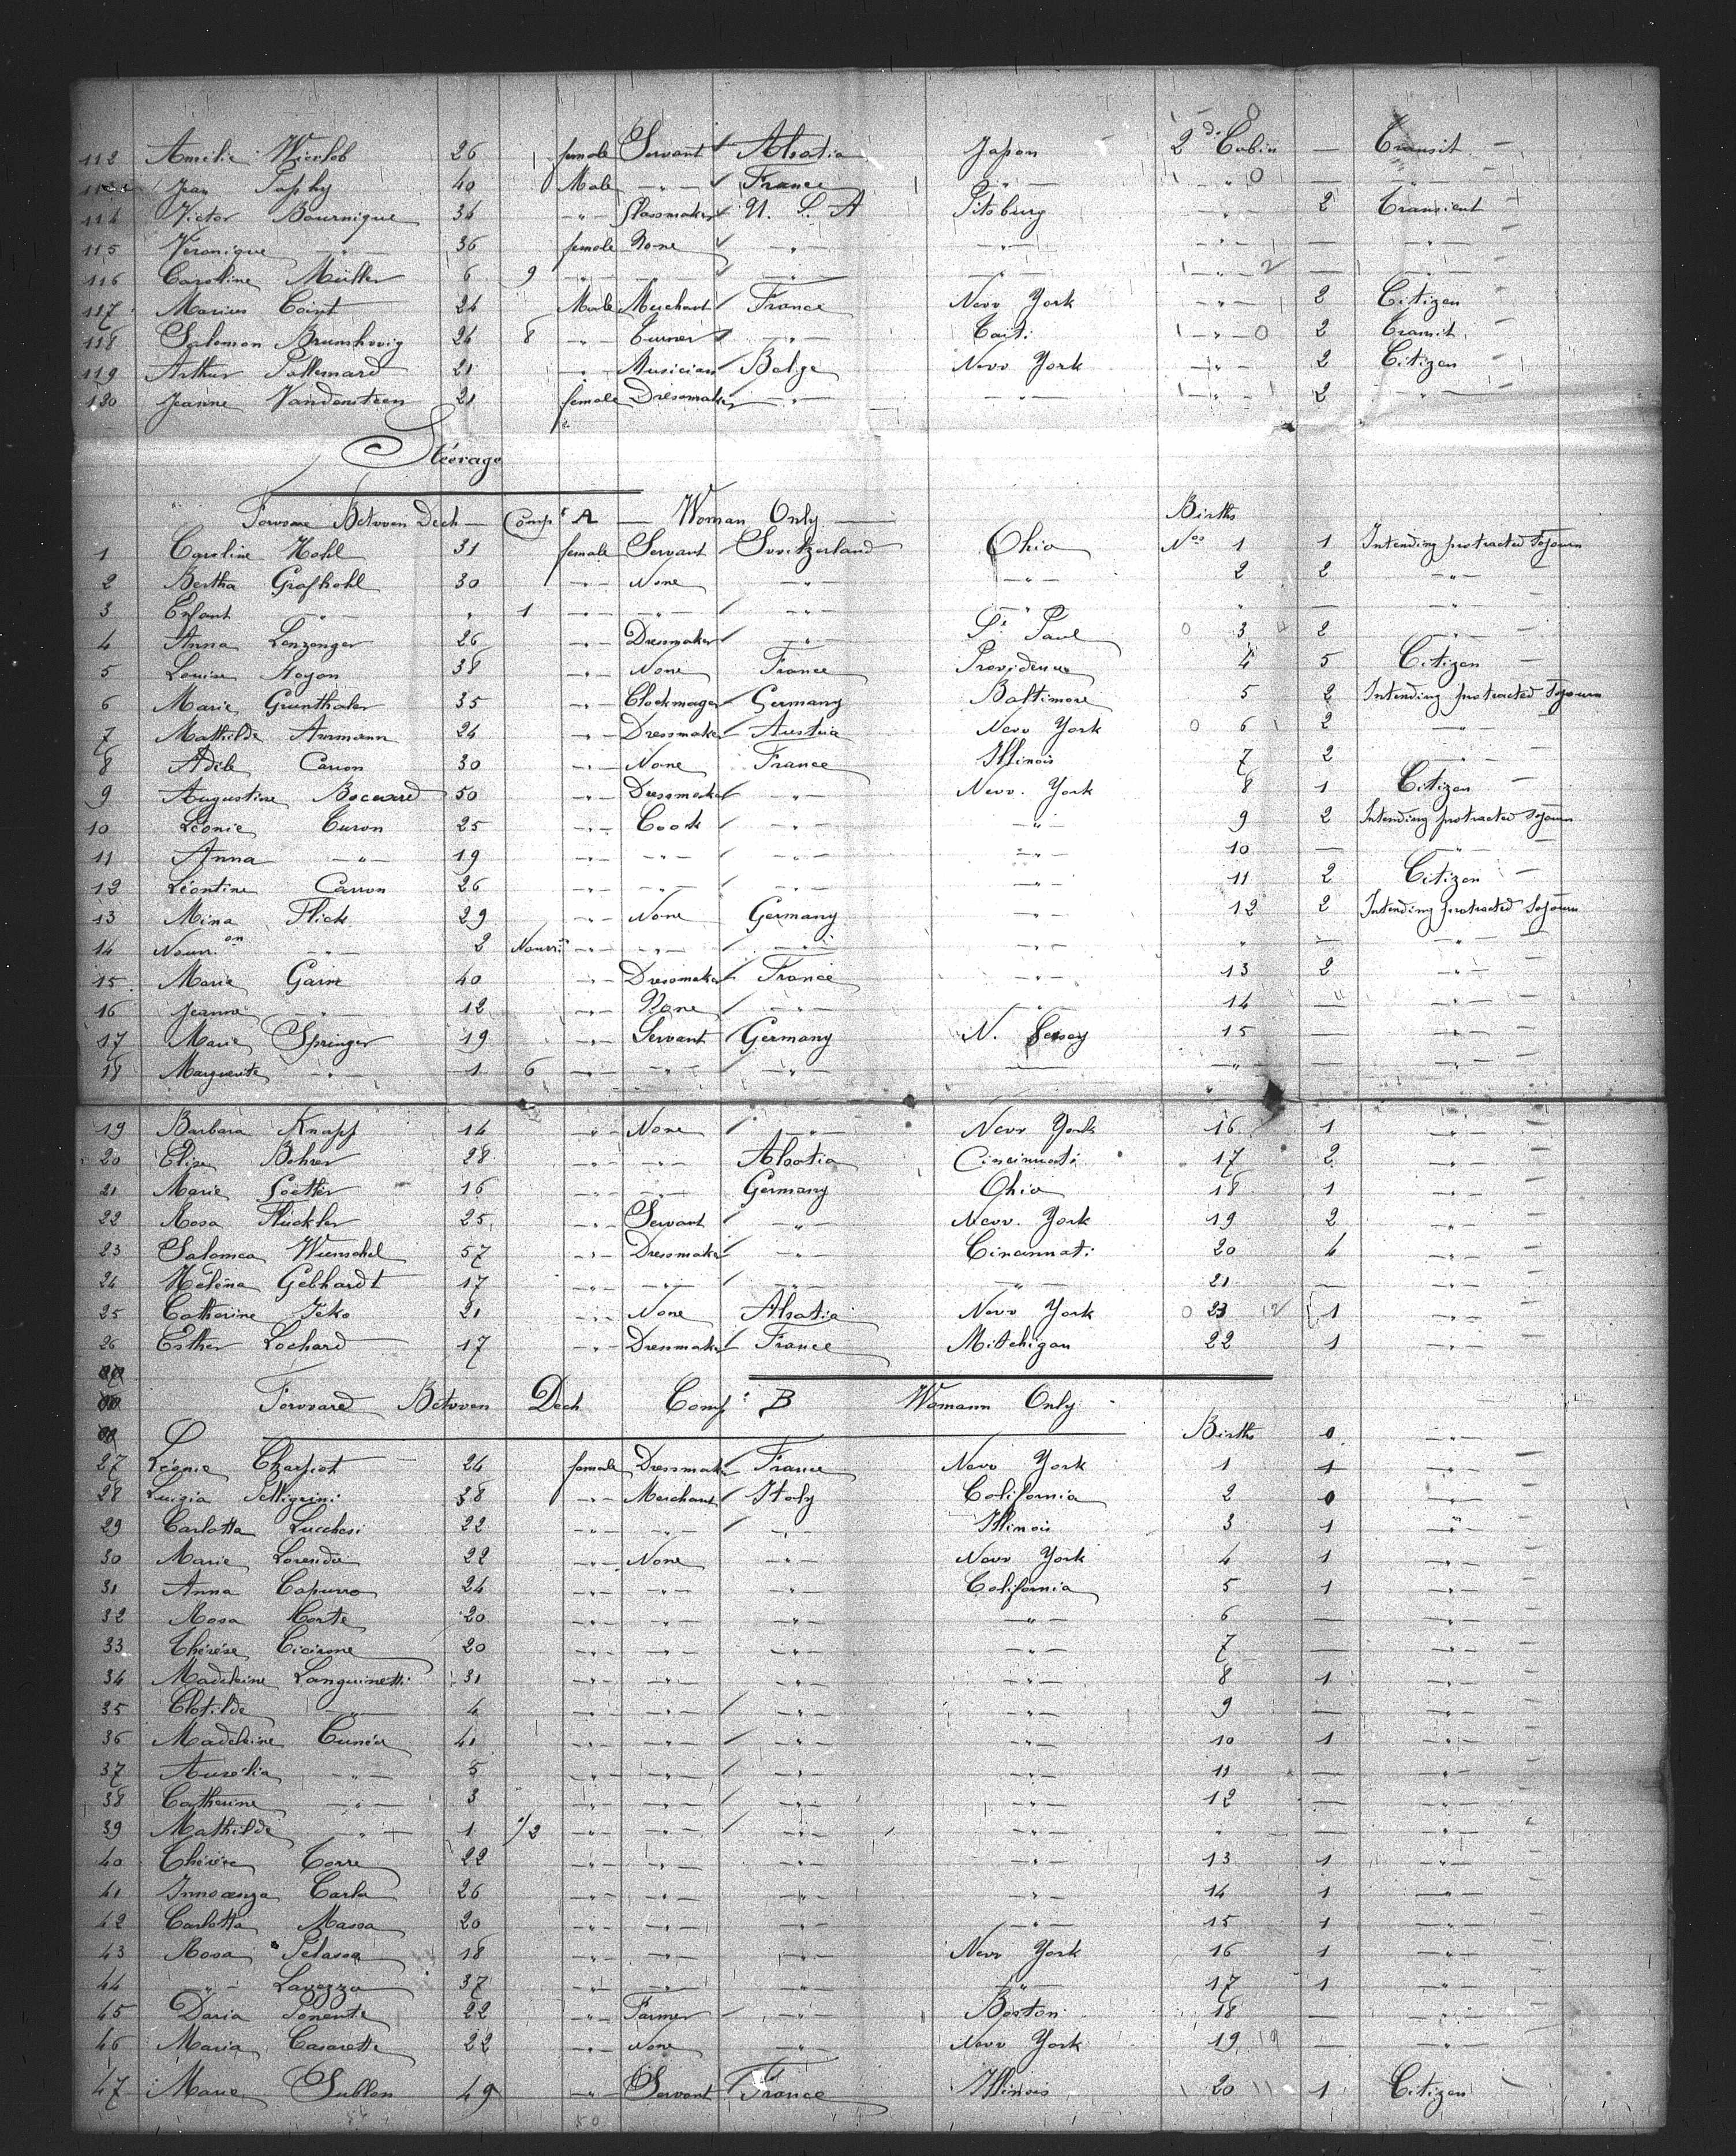 112 Amelie 26 female Servant Alsatia Japon 2d Cabin — Transit —
Jean Saphy 40 Male —"— France —"— " 0 — "
114 Victor Bournique 34 —"— Glassmaker U. S. A Pitsburg —"— 2 Transient
115 Veronique —"— 36 female None —"— —"— —"— — "
116 Caroline Müller 6 9 —"— —"— —"— —"— —"— — —"—
117 Marius Coint 24 Male Merchant France New York —"— 2 Citizen —
118 Salomon Brunshvig 24 8 —"— Turner —"— Taïti —"— 0 2 Transit —
119 Arthur Pallemard 21 —"— Musician Belge New York —"— 2 Citizen —
120 Jeanne Vandensteen 21 female Dressmaker —"— —"— —"— 2 —"—
Steerage
Forware Betwen Dech — Compt A — Woman Only — Births
1 Caroline Hohl 31 female Servant Switzerland Ohio Nos 1 1 Intending protracted Sojourn
2 Bertha Grafhohl 30 —"— None —"— —"— 2 2 —"—
3 Enfant —"— " 1 —"— —"— —"— —"— " — —"—
4 Anna Lenzenger 26 —"— Dressmaker —"— St Paul 0 3 2 —"—
5 Louise 38 —"— None France Providence 4 5 Citizen —
6 Marie Grunthaler 35 —"— Clockmager Germany Baltimore 5 2 Intending protracted Sojourn
7 Mathilde Aurmann 24 —"— Dressmaker Austria New York 0 6 2 —"—
8 Adèle Carron 30 —"— None France Illinois 7 2 —"—
9 Augustine 50 —"— Dressmaker —"— New. York 8 1 Citizen —
10 Léonie Curon 25 —"— Cook —"— —"— 9 2 Intending protracted Sojourn
11 Anna —"— 19 —"— —"— —"— —"— 10 — —"—
12 Léontine Carron 26 —"— —"— —"— —"— 11 2 Citizen —
13 Mina Flick 29 —"— None Germany —"— 12 2 Intending protracted Sojourn
14 Nourr.on —"— 2 Nourr.on —"— —"— —"— —"— " — —"—
15 Marie Garne 40 —"— Dressmaker France —"— 13 2 —"—
16 Jeanne —"— 12 —"— None —"— —"— 14 — —"—
17 Marie Springer 19 —"— Servant Germany N. Jersey 15 — —"—
18 Marguerite —"— 1 6 —"— —"— —"— — —"— — —"—
19 Barbara Knapp 14 —"— None —"— New York 16 1 —"—
20 Elise Bohrer 28 —"— —"— Alsatia Cincinnati 17 2 —"—
21 Marie Soetter 16 —"— —"— Germany Ohio 18 1 —"—
22 Rosa Flückler 25 —"— Servant —"— New. York 19 2 —"—
23 Salomea Wunschel 57 —"— Dressmaker —"— Cincinnati 20 4 —"—
24 Helena Gebhardt 17 —"— —"— —"— —"— 21 — —"—
25 Catherine Jeko 21 —"— None Alsatia New York 0 23 1 —"—
26 Esther Lochard 17 —"— Dressmaker France Mitchigan 22 1 —"—
Forward Betwen Dech Compt B Womann Only
Births 0 —"—
27 Léonie Charpiot 24 female Dressmaker France New York 1 1 —"—
28 Luigia Pelligrini 38 —"— Merchant Italy California 2 0 —"—
29 Carlotta Lucchesi 22 —"— —"— —"— Illinois 3 1 —"—
30 Marie 22 —"— None —"— New York 4 1 —"—
31 Anna Capurro 24 —"— —"— —"— California 5 1 —"—
32 Rosa Corte 20 —"— —"— —"— —"— 6 — —"—
33 Thérèse Cicirone 20 —"— —"— —"— —"— 7 — —"—
34 Madeleine Languinetti 31 —"— —"— —"— —"— 8 1 —"—
35 Clotilde —"— 4 —"— —"— —"— —"— 9 — —"—
36 Madeleine Cunéo 41 —"— —"— —"— —"— 10 1 —"—
37 Aurélia —"— 5 —"— —"— —"— —"— 11 — —"—
38 Catherine —"— 3 —"— —"— —"— —"— 12 — —"—
39 Mathilde —"— 1 1/2 —"— —"— —"— —"— " — —"—
40 Thérèse Torre 22 —"— —"— —"— —"— 13 1 —"—
41 Innocenza Carla 26 —"— —"— —"— —"— 14 1 —"—
42 Carlotta Massa 20 —"— —"— —"— —"— 15 1 —"—
43 Rosa Pelassa 18 —"— —"— —"— New York 16 1 —"—
44 —"— Lavezzo 37 —"— —"— —"— —"— 17 1 —"—
45 Daria Ponente 22 —"— Farmer —"— Boston 18 — —"—
46 Maria Casaretto 22 —"— None —"— New York 19 — —"—
47 Marie Sublon 49 —"— Servant France Illinois 20 1 Citizen —